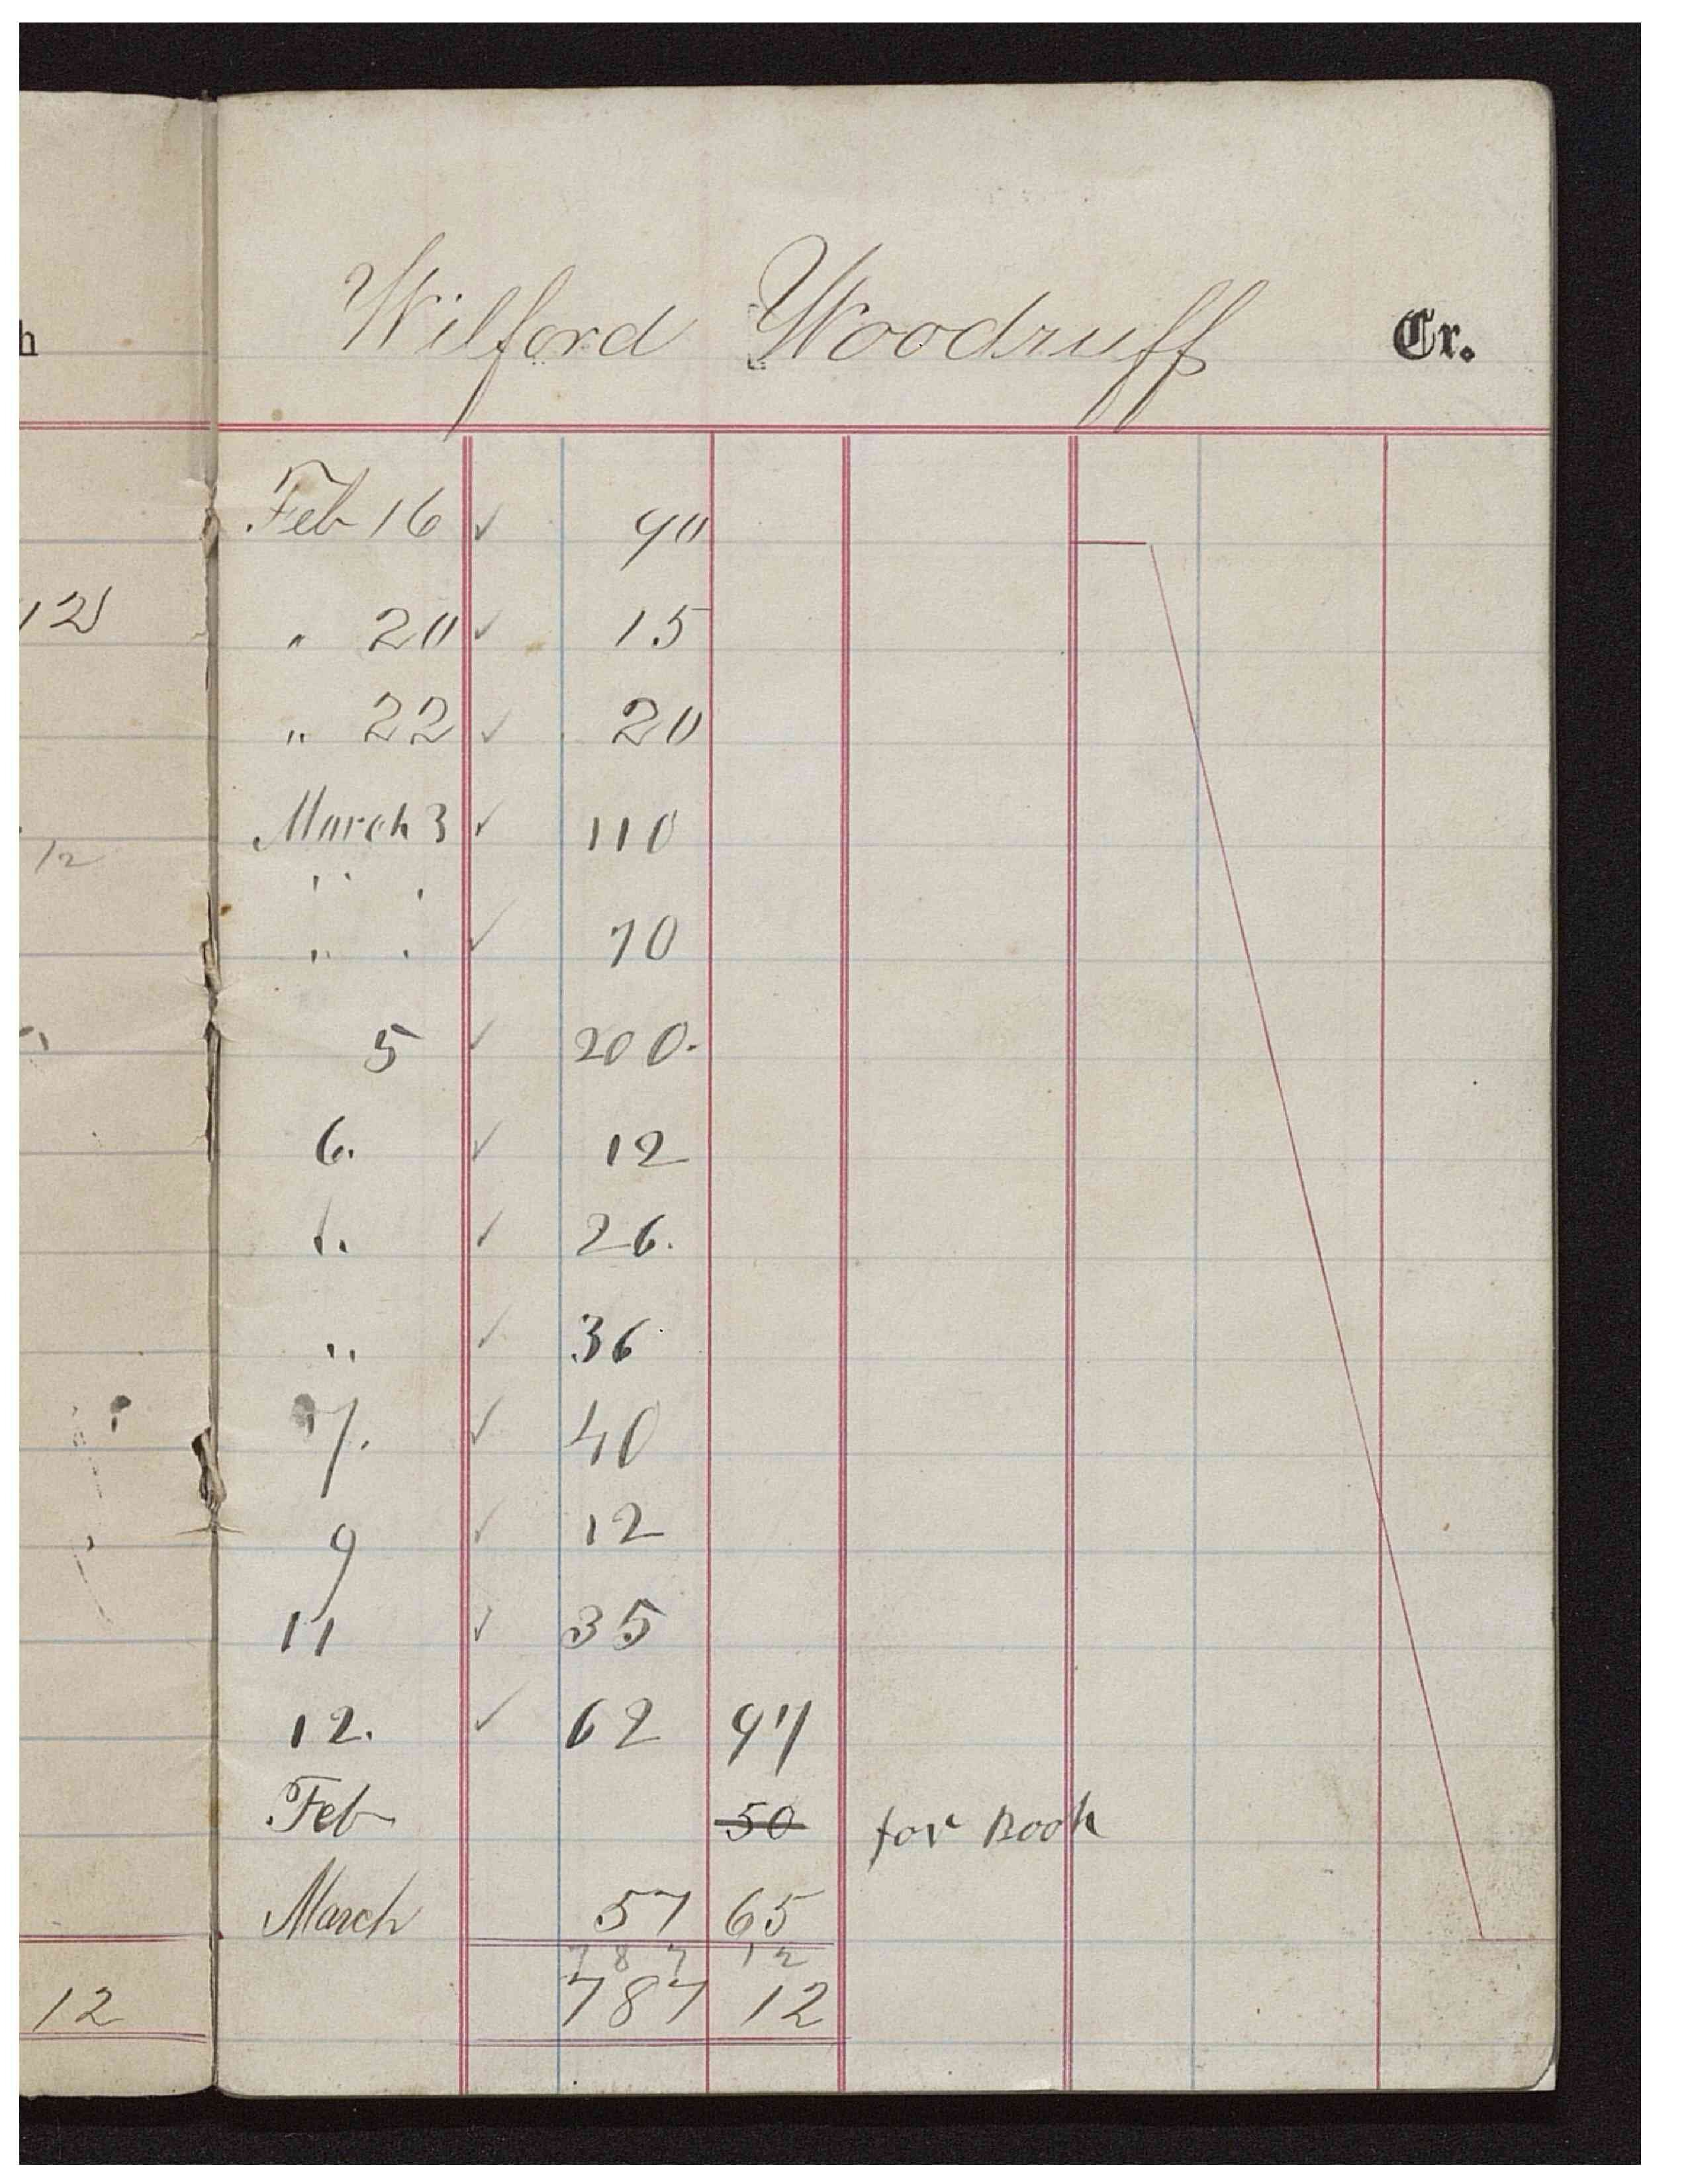 h
Wilford Woodruff Cr.
Feb 16 ✓ 90
12
" 20 ✓ 15
" 22 ✓ 20
March 3 ✓ 110
12
" "
" " ✓ 70
5 ✓ 200.
6. ✓ 12
". ✓ 26.
" ✓ 36
7. ✓ 40
9 ✓ 12
11 ✓ 35
12. ✓ 62 97
Feb 50 for Book
March 57 65
787 12
12 787 12